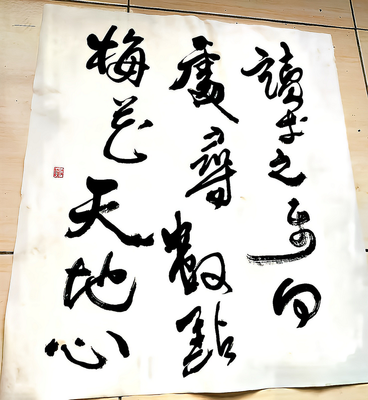 讀書之樂何
處尋數點
梅花天地心